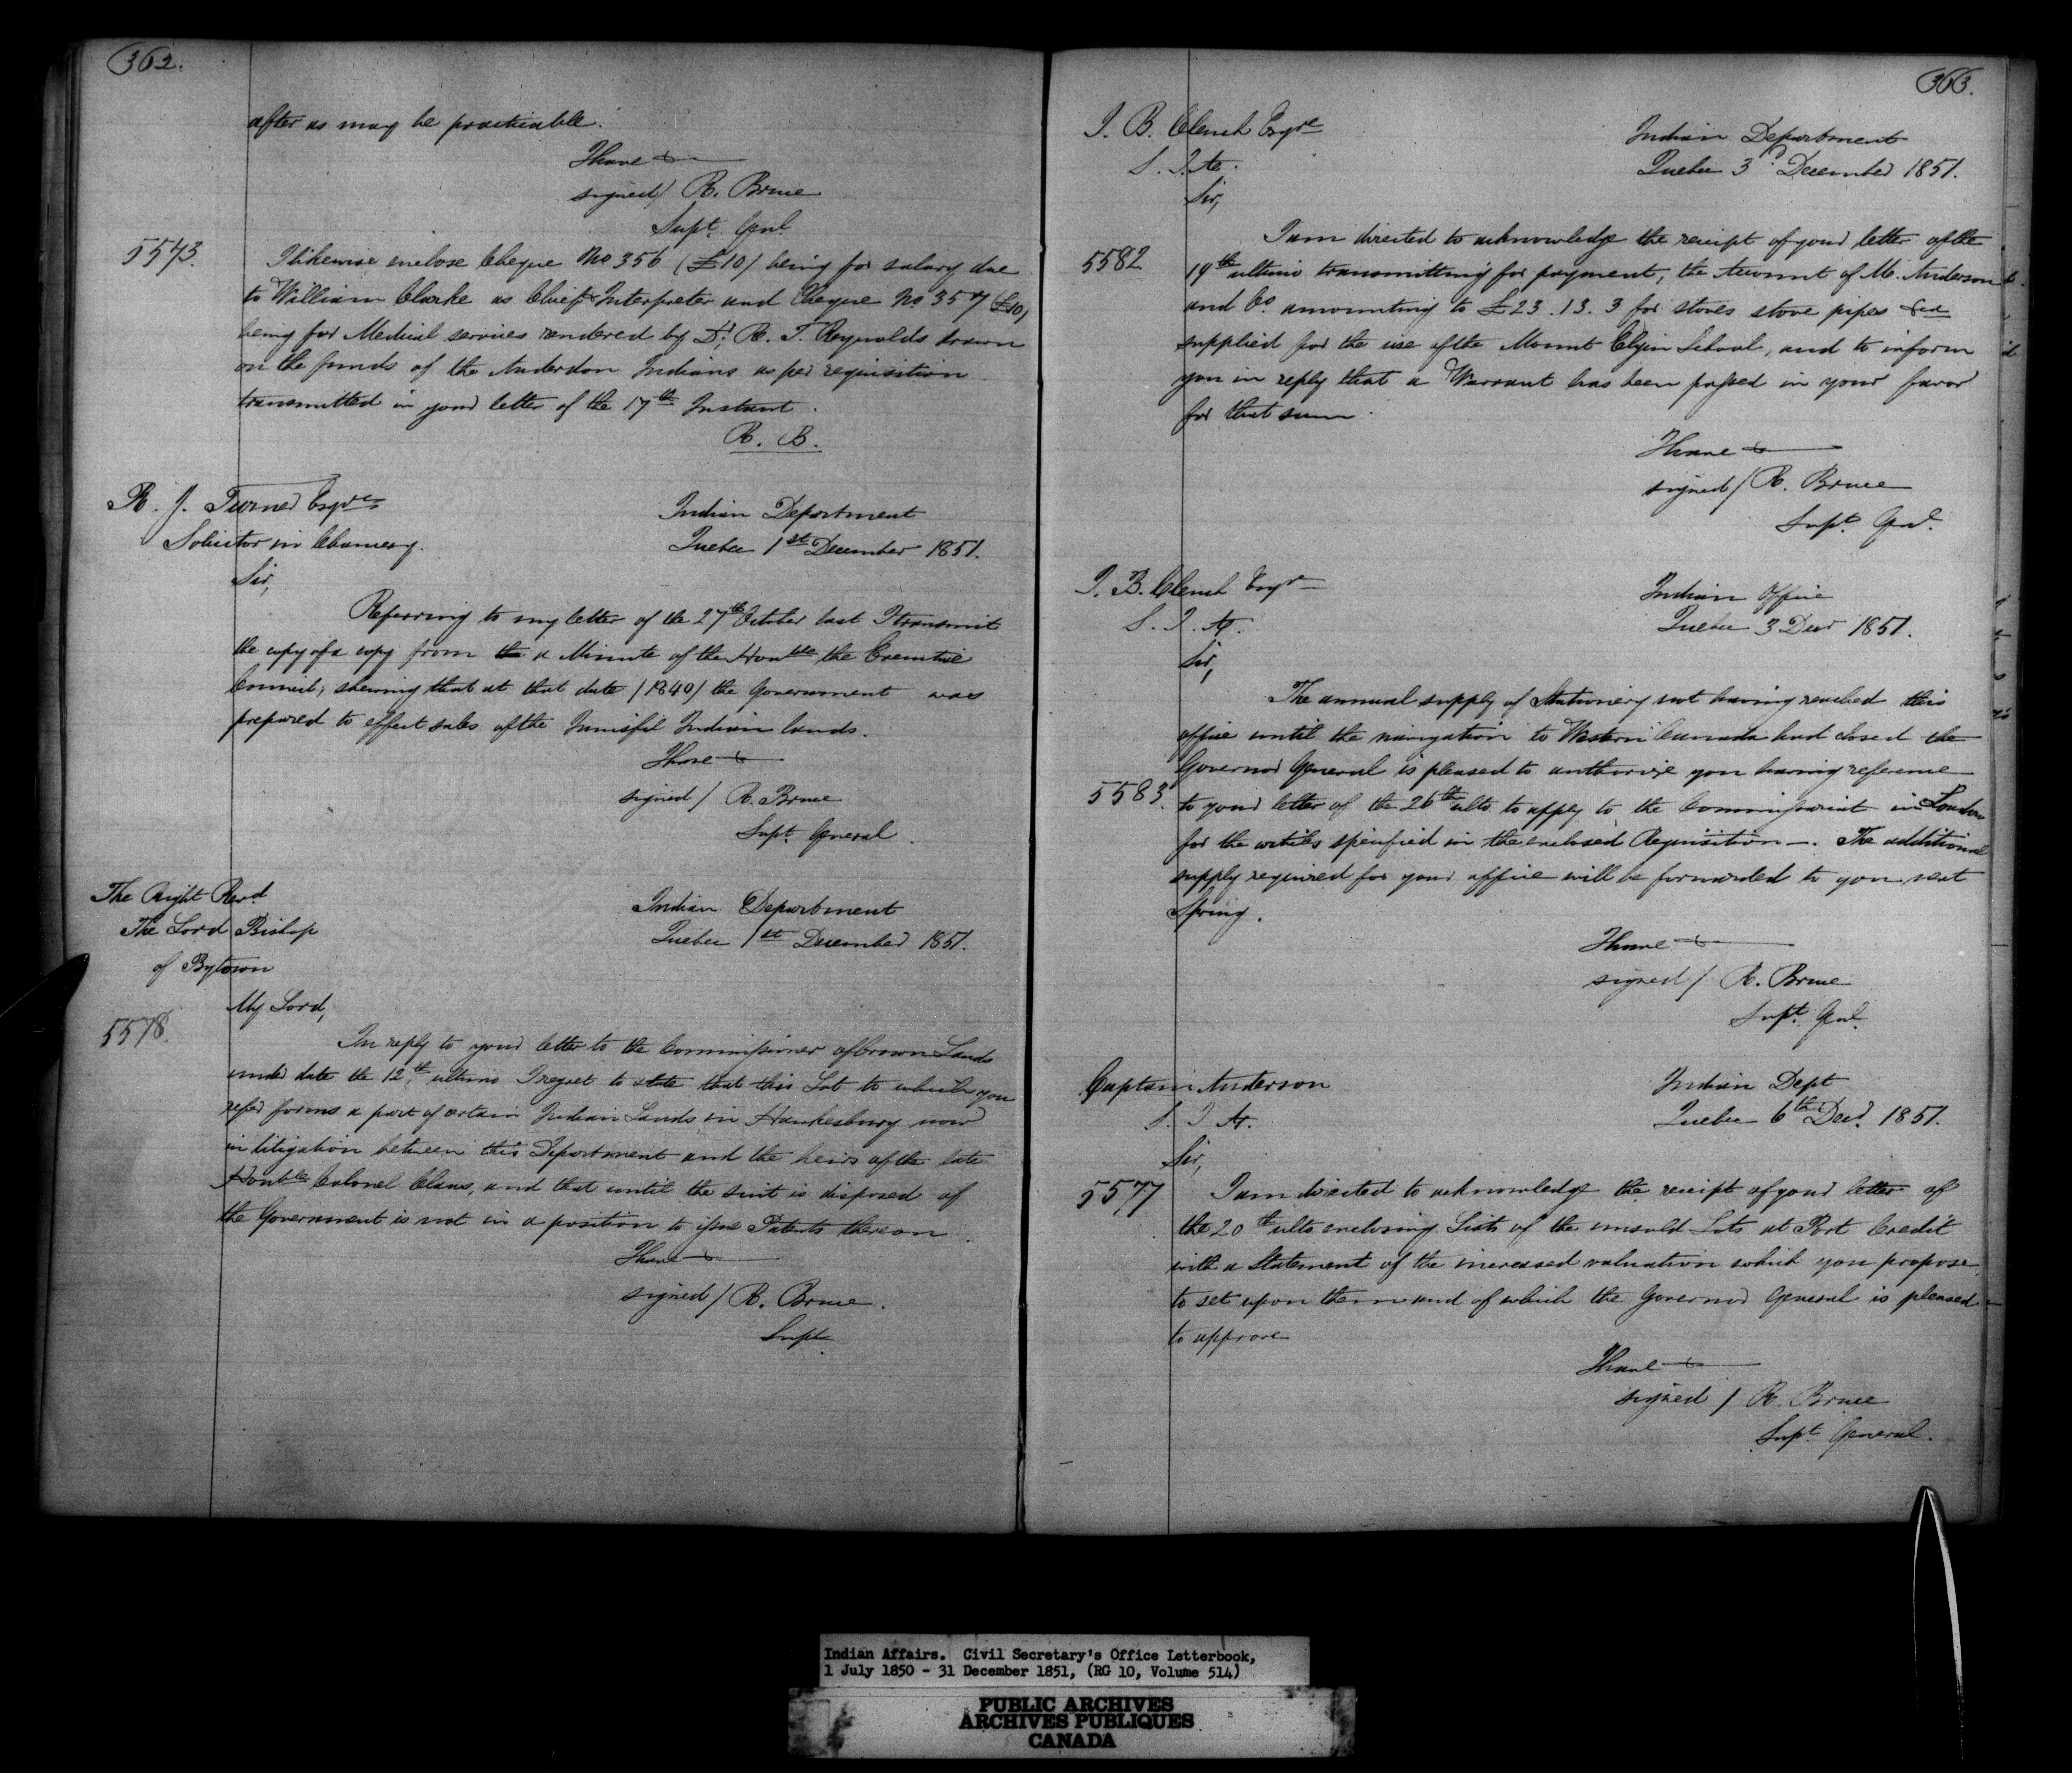 362.
after as may be practicable.
I have &c
signed/ R. Bruce
Supt. Genl.
5543.
I likewise enclose Cheque No 356 (£10) being for salary due
to William Clarke as Chief & Interpreter and Cheque No. 357 (£10)
being for Medical services rendered by Dr. R. T. Reynolds drawn
on the funds of the Anderdon Indians as per requisition
transmitted in your letter of the 17th Instant.
R. B.
R. J. Turner Esqre
Solicitor in Chancery.
Indian Department
Quebec 1st December 1851.
Sir,
Referring to my letter of the 27th October last I transmit
the copy of a copy from the a Minute of the Honble the Executive
Council, shewing that at that date /1840/ the Government was
prepared to effect sales of the Innisfil Indian lands.
I have &c
signed/ R. Bruce
Supt. General.
The Right Revd.
The Lord Bishop
of Bytown
Indian Department
Quebec 1st December 1851.
My Lord,
5578.
In reply to your letter to the Commissioner of Crown Lands
under date the 12th, ultimo I regret to state that this Lot to which you
refer forms a part of certain Indian Lands in Hawkesbury now
in litigation between this Department and the heirs of the late
Honble Colonel Claus, and that until the suit is disposed of
the Government is not in a position to issue Patents thereon.
I have &c
signed/ R. Bruce.
Supt.
363.
J. B. Clench Esqre
S. I. A.
Indian Department
Quebec 3d December 1851.
Sir,
5582
I am directed to acknowledge the receipt of your letter of the
19th ultimo transmitting for payment, the Account of M. Anderson
and Co. amounting to £23.13.3 for stoves stove pipes &ca
supplied for the use of the Mount Elgin School, and to inform
you in reply that a Warrant has been passed in your favor
for that sum.
I have &c
signed/ R. Bruce
Supt. Genl.
J. B. Clench Esqre
S. I. A.
Indian Office
Quebec 3 Decr 1851.
Sir,
The annual supply of Stationery not having reached this
office until the navigation to Western Canada had closed the
Governor General is pleased to authorize you having reference
5583.
to your letter of the 26th ulto to apply to the Commissariat in London
for the articles specified in the enclosed Requisition—. The additional
supply required for your office will be forwarded to you next
Spring.
I have &c
signed/ R. Bruce
Supt. Genl.
Captain Anderson
S. I. A.
Indian Dept
Quebec 6th Decr. 1851.
Sir,
5577
I am directed to acknowledge the receipt of your letter of
the 20th ulto enclosing Lists of the unsold Lots at Port Credit
with a Statement of the increased valuation which you propose
to set upon them and of which the Governor General is pleased
to approve
I have &c
signed / R. Bruce
Supt. General.
Indian Affairs. Civil Secretary's Office Letterbook,
1 July 1850 - 31 December 1851, (RG 10, Volume 514)
PUBLIC ARCHIVES
ARCHIVES PUBLIQUES
CANADA